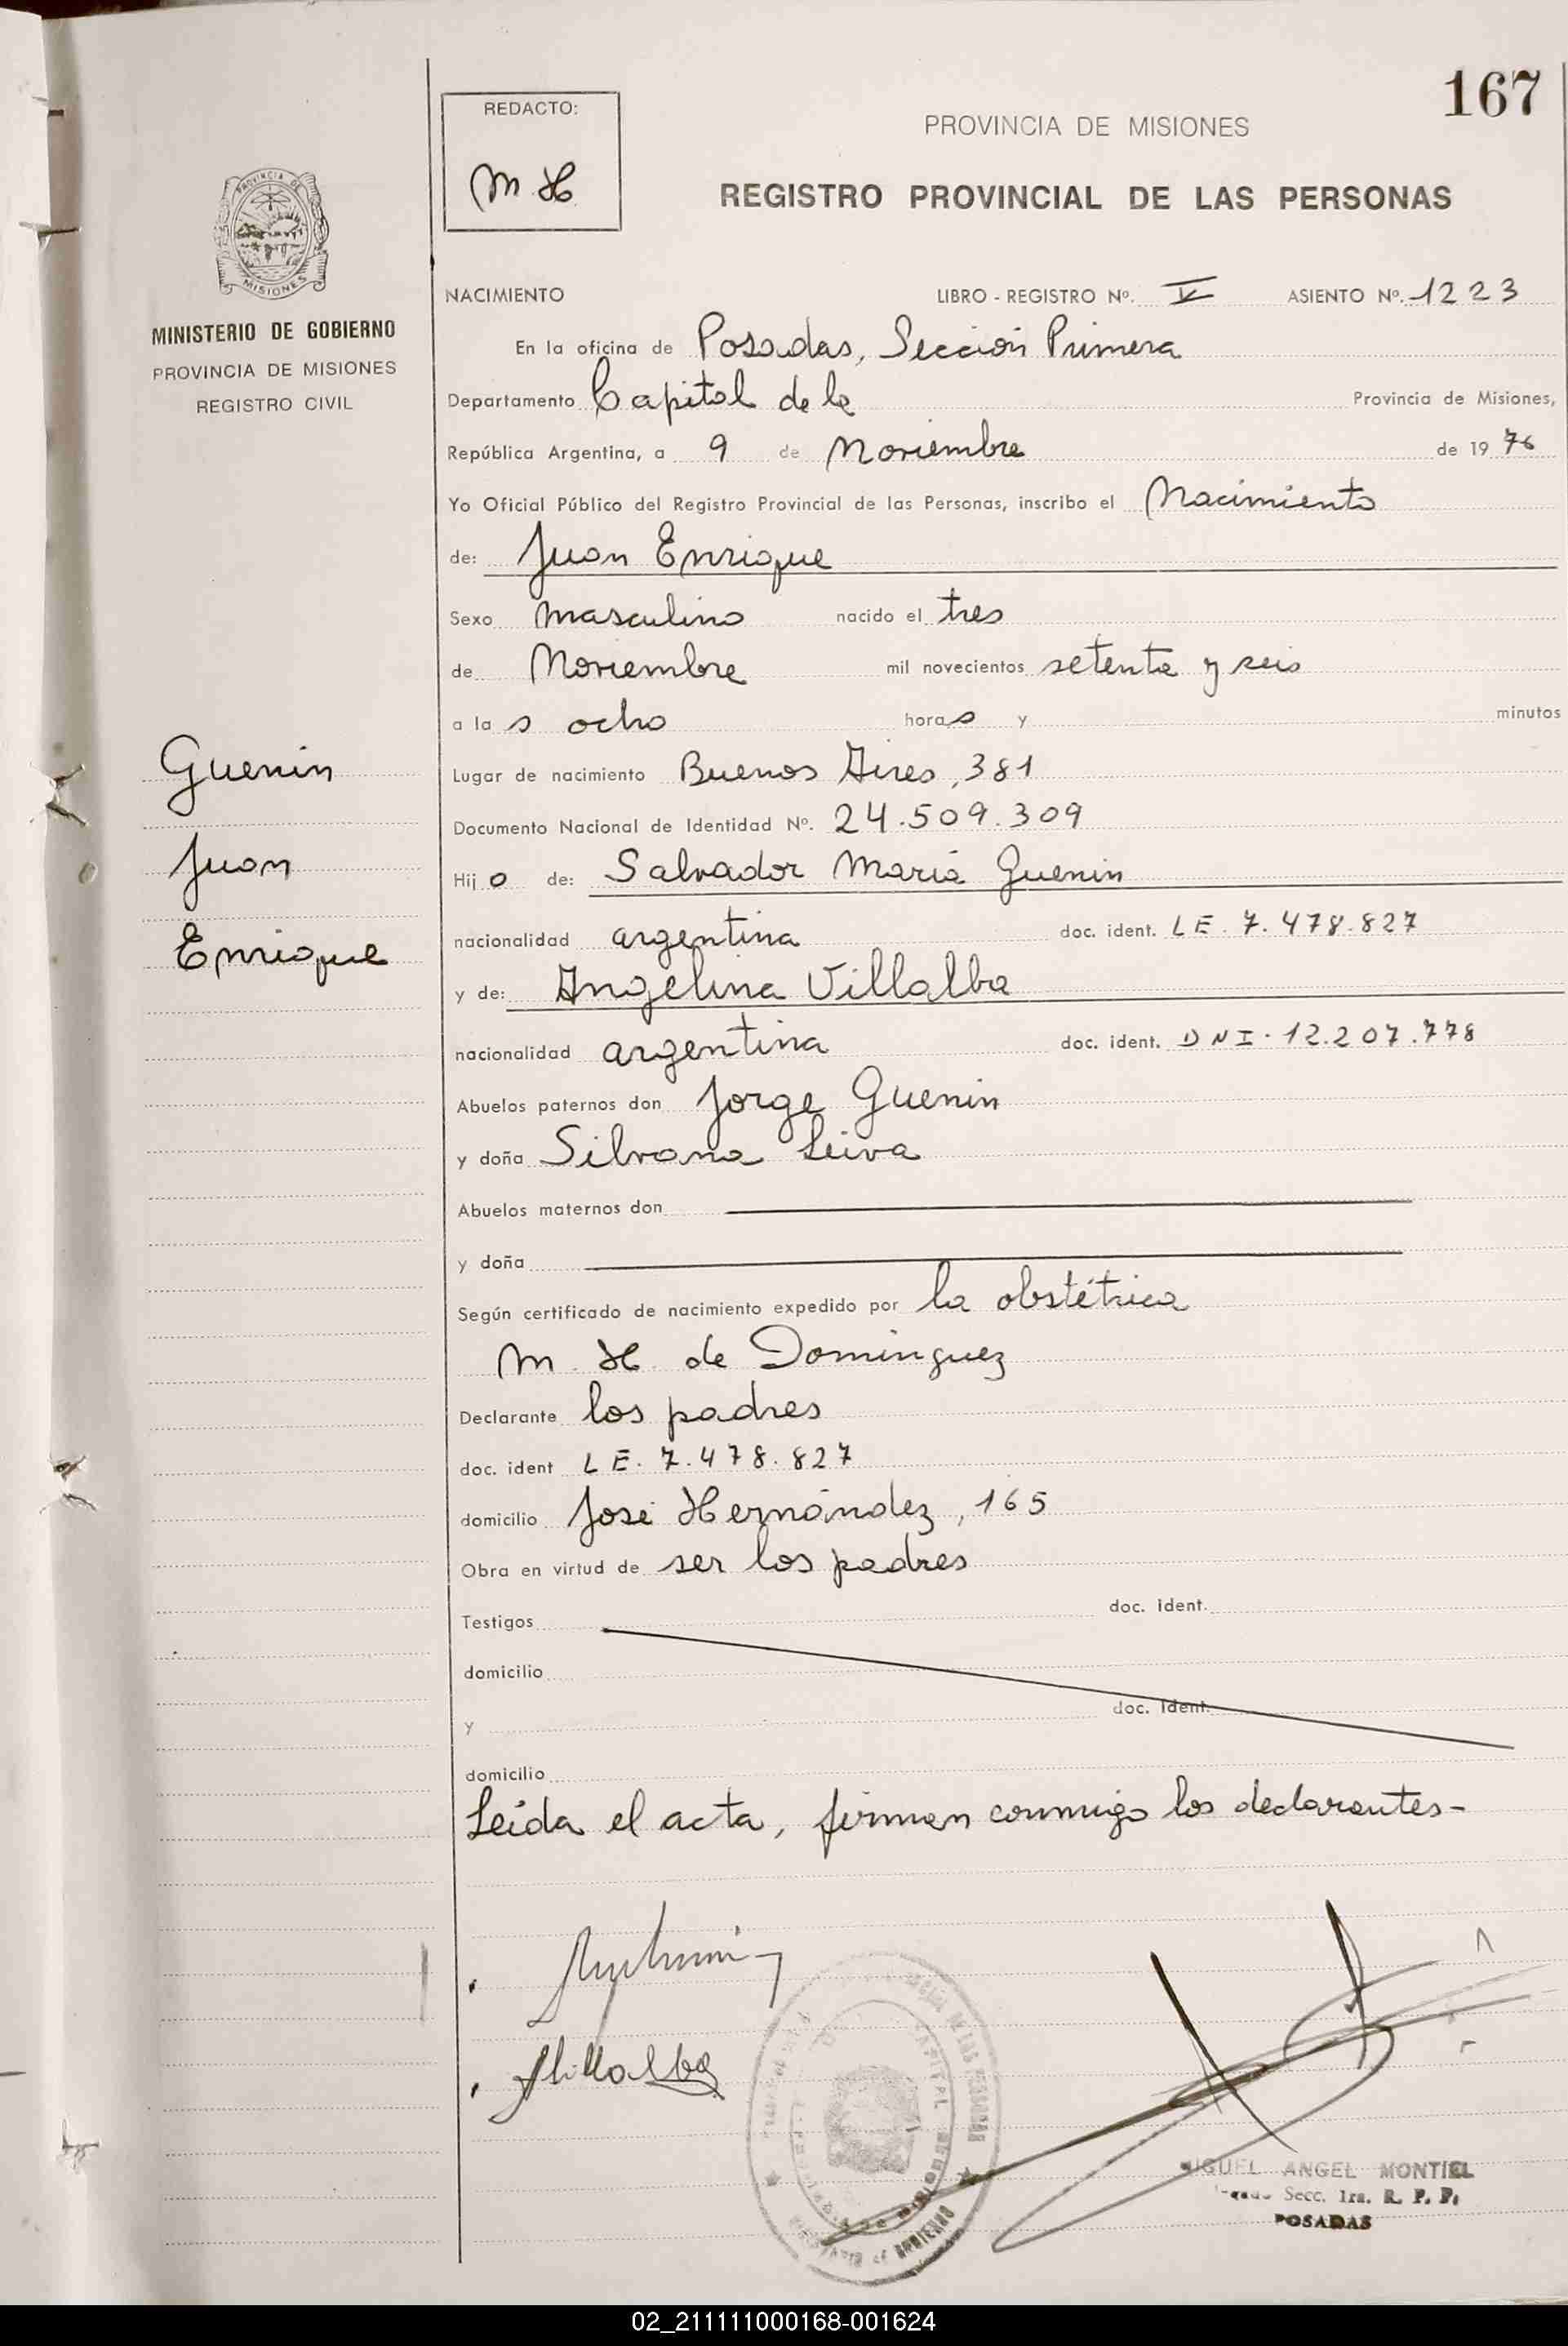 167
REDACTO:
M. H.
PROVINCIA DE MISIONES
REGISTRO PROVINCIAL DE LAS PERSONAS
PROVINCIA DE
MISIONES
MINISTERIO DE GOBIERNO
PROVINCIA DE MISIONES
REGISTRO CIVIL
NACIMIENTO LIBRO - REGISTRO Nº. V ASIENTO Nº. 1223
En la oficina de Posadas, Sección Primera
Departamento Capital de la Provincia de Misiones,
República Argentina, a 9 de Noviembre de 19 76
Yo Oficial Público del Registro Provincial de las Personas, inscribo el Nacimiento
de: Juan Enrique
Sexo masculino nacido el tres
de Noviembre mil novecientos setenta y seis
a la s ocho hora s y minutos
Guenin
Juan
Enrique
Lugar de nacimiento Buenos Aires, 381
Documento Nacional de Identidad Nº. 24.509.309
Hij o de: Salvador María Guenin
nacionalidad argentina doc. ident. LE. 7.478.827
y de: Angelina Villalba
nacionalidad argentina doc. ident. DNI. 12.207.778
Abuelos paternos don Jorge Guenin
y doña Silvana Leiva
Abuelos maternos don
y doña
Según certificado de nacimiento expedido por la obstétrica
M. H. de Domínguez
Declarante los padres
doc. ident LE. 7.478.827
domicilio José Hernández, 165
Obra en virtud de ser los padres
Testigos doc. ident.
domicilio
y doc. ident.
domicilio
Leída el acta, firman conmigo los declarantes-
AVillalba
MIGUEL ANGEL MONTIEL
Secc. 1ra. R. P. P.
POSADAS
02_211111000168-001624